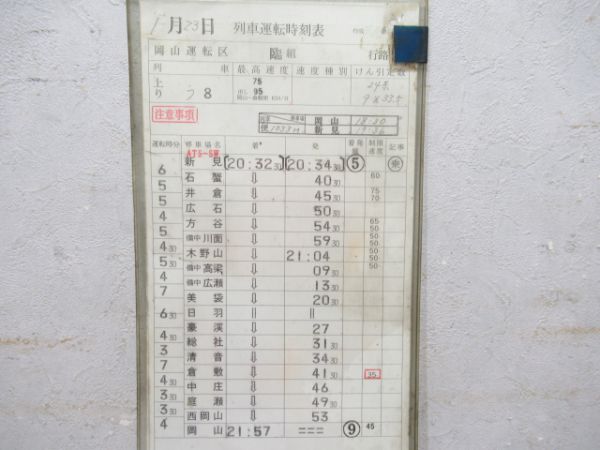 1月23日 列車運転時刻表
岡山運転区 臨組 行路
列車 最高速度 速度種別 けん引定数
上り う8 75 95
注意事項
便 1033M 岡山 18:30 新見 19:36
運転時分 停車場名 着 発 着発線 制限速度 記事
ATS-SW
新見 [20:32 30] [20:34 30] ⑤ 乗
6 石蟹 ⇩ 40 30 60
5 井倉 ⇩ 45 30 75 70
5 広石 ⇩ 50 30
4 方谷 ⇩ 54 30 65 50
5 備中川面 ⇩ 59 30 50 50
4 30 木野山 ⇩ 21:04 50 50
5 30 備中高梁 ⇩ 09 30 50
4 備中広瀬 ⇩ 13 30
7 美袋 ⇩ 20 30
日羽 || ||
6 30 豪渓 ⇩ 27
4 30 総社 ⇩ 31 30
3 清音 ⇩ 34 30
7 倉敷 ⇩ 41 30 35
4 30 中庄 ⇩ 46
3 30 庭瀬 ⇩ 49 30
3 30 西岡山 ⇩ 53
4 岡山 21:57 === ⑨ 45